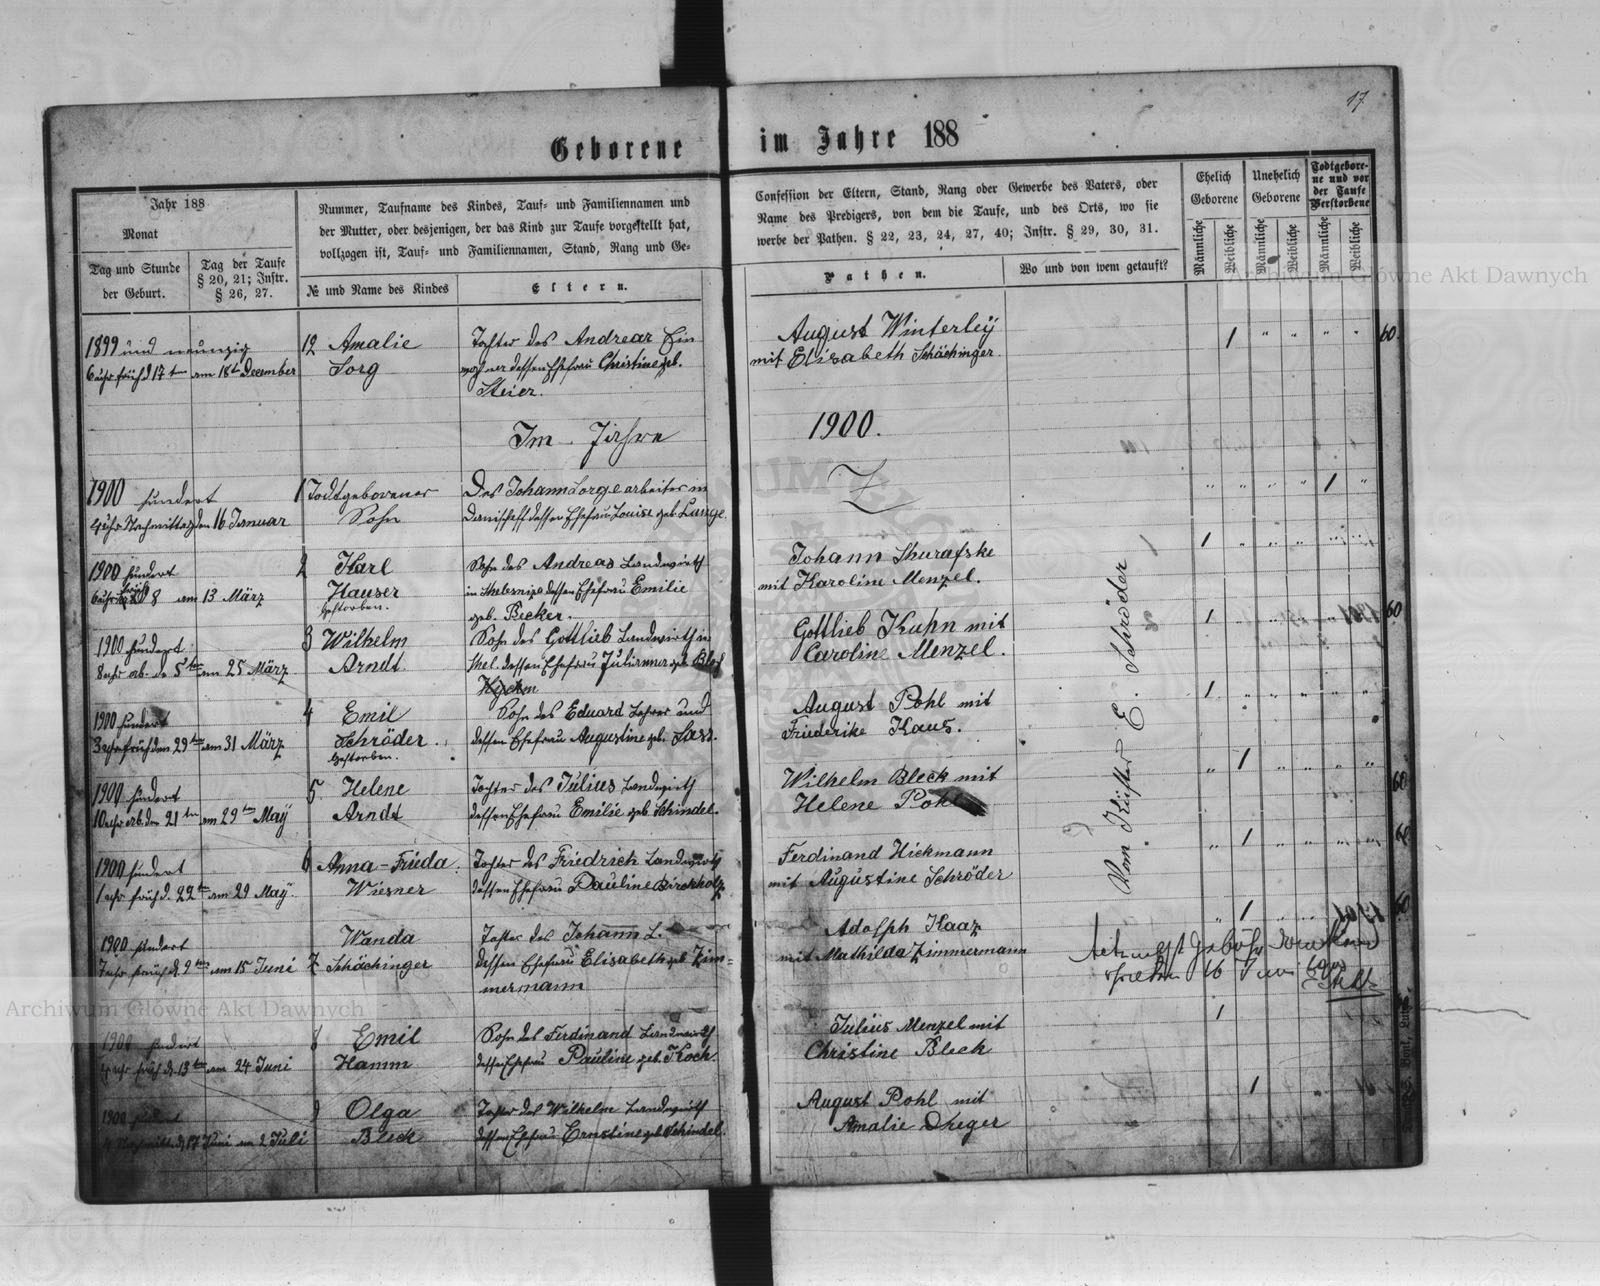 17
Geborene im Jahre 188
Jahr 188
Monat
Tag und Stunde
der Geburt.
Tag der Taufe
§ 20, 21; Instr.
§ 26, 27.
Nummer, Taufname des Kindes, Tauf- und Familiennamen und
der Mutter, oder desjenigen, der das Kind zur Taufe vorgestellt hat,
vollzogen ist, Tauf- und Familiennamen, Stand, Rang und Ge-
№ und Name des Kindes
Eltern.
Confession der Eltern, Stand, Rang oder Gewerbe des Vaters, oder
Name des Predigers, von dem die Taufe, und des Orts, wo sie
werbe der Pathen. § 22, 23, 24, 27, 40; Instr. § 29, 30, 31.
Pathen.
Wo und von wem getauft?
Ehelich
Geborene
Unehelich
Geborene
Todtgebore-
ne und vor
der Taufe
Verstorbene
Männliche
Weibliche
Männliche
Weibliche
Männliche
Weibliche
1899 und neunzig
6 uhr früh d 17ten am 18ten December
12 Amalie
Sorg
Tochter des Andreas Ein
wohner dessen Ehefrau Christine geb.
Steier.
August Winterley
mit Elisabeth Schächinger.
1 60
Im Jahre 1900.
1900 hundert
4 uhr Nachmittag den 16 Januar
1 Todtgeborener
Sohn
Des Johann Sorge arbeiter in
dessen Ehefrau Louise geb. Lange.
1
1900 hundert
6 uhr früh d 8 am 13 März
2 Karl
Hauser
Gestorben.
Sohn des Andreas Landwirth
in dessen Ehefrau Emilie
geb. Becker.
Johann
mit Karoline Menzel.
1
1900 hundert
8 uhr ab. d. 5ten am 25 März
3 Wilhelm
Arndt.
Sohn des Gottlieb Landwirth in
dessen Ehefrau Julianna geb.
Gottlieb Kuhn mit
Caroline Menzel.
1 60
1900 hundert
3 uhr früh den 29ten am 31 März
4 Emil
Schröder.
Gestorben.
Sohn des Eduard Lehrer und
dessen Ehefrau Augustine geb. Sass.
August Pohl mit
Friederike Kaus.
1
1900 hundert
10 uhr ab. den 21ten am 29ten May
5. Helene
Arndt
Tochter des Julius Landwirth
dessen Ehefrau Emilie geb. Schindel.
Wilhelm Bleck mit
Helene Pohl
1 60
1900 hundert
1 uhr früh d. 22ten am 29 May
6 Anna-Frieda.
Wiesner
Tochter des Friedrich Landwirth
dessen Ehefrau Pauline Birckholz
Ferdinand Hickmann
mit Augustine Schröder
1 60
1900 hundert
7 uhr früh d. 9ten am 15 Juni
7 Wanda
Schächinger
Tochter des Johann L.
dessen Ehefrau Elisabeth geb. Zim-
mermann
Adolph Kaaz
mit Mathilda Zimmermann
1 60
16 Juni
1900 hundert
4 uhr früh d. 13ten am 24 Juni
8 Emil
Hamm
Sohn des Ferdinand Landwirth
dessen Ehefrau Pauline geb. Koch.
Julius Menzel mit
Christine Bleck
1
1900 hundert
d. 17 Juni am 2 Juli
9 Olga
Bleck
Tochter des Wilhelm Landwirth
dessen Ehefrau Ernstine geb. Schindel.
August Pohl mit
Amalie Dreger
1
Vom Küster E. Schröder
Archiwum Główne Akt Dawnych
Archiwum Główne Akt Dawnych